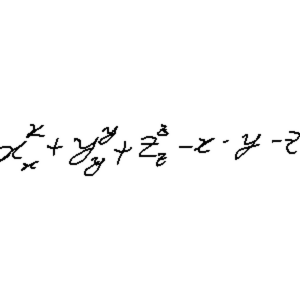 x_x^x + y_y^y + z_z^z - x - y - z